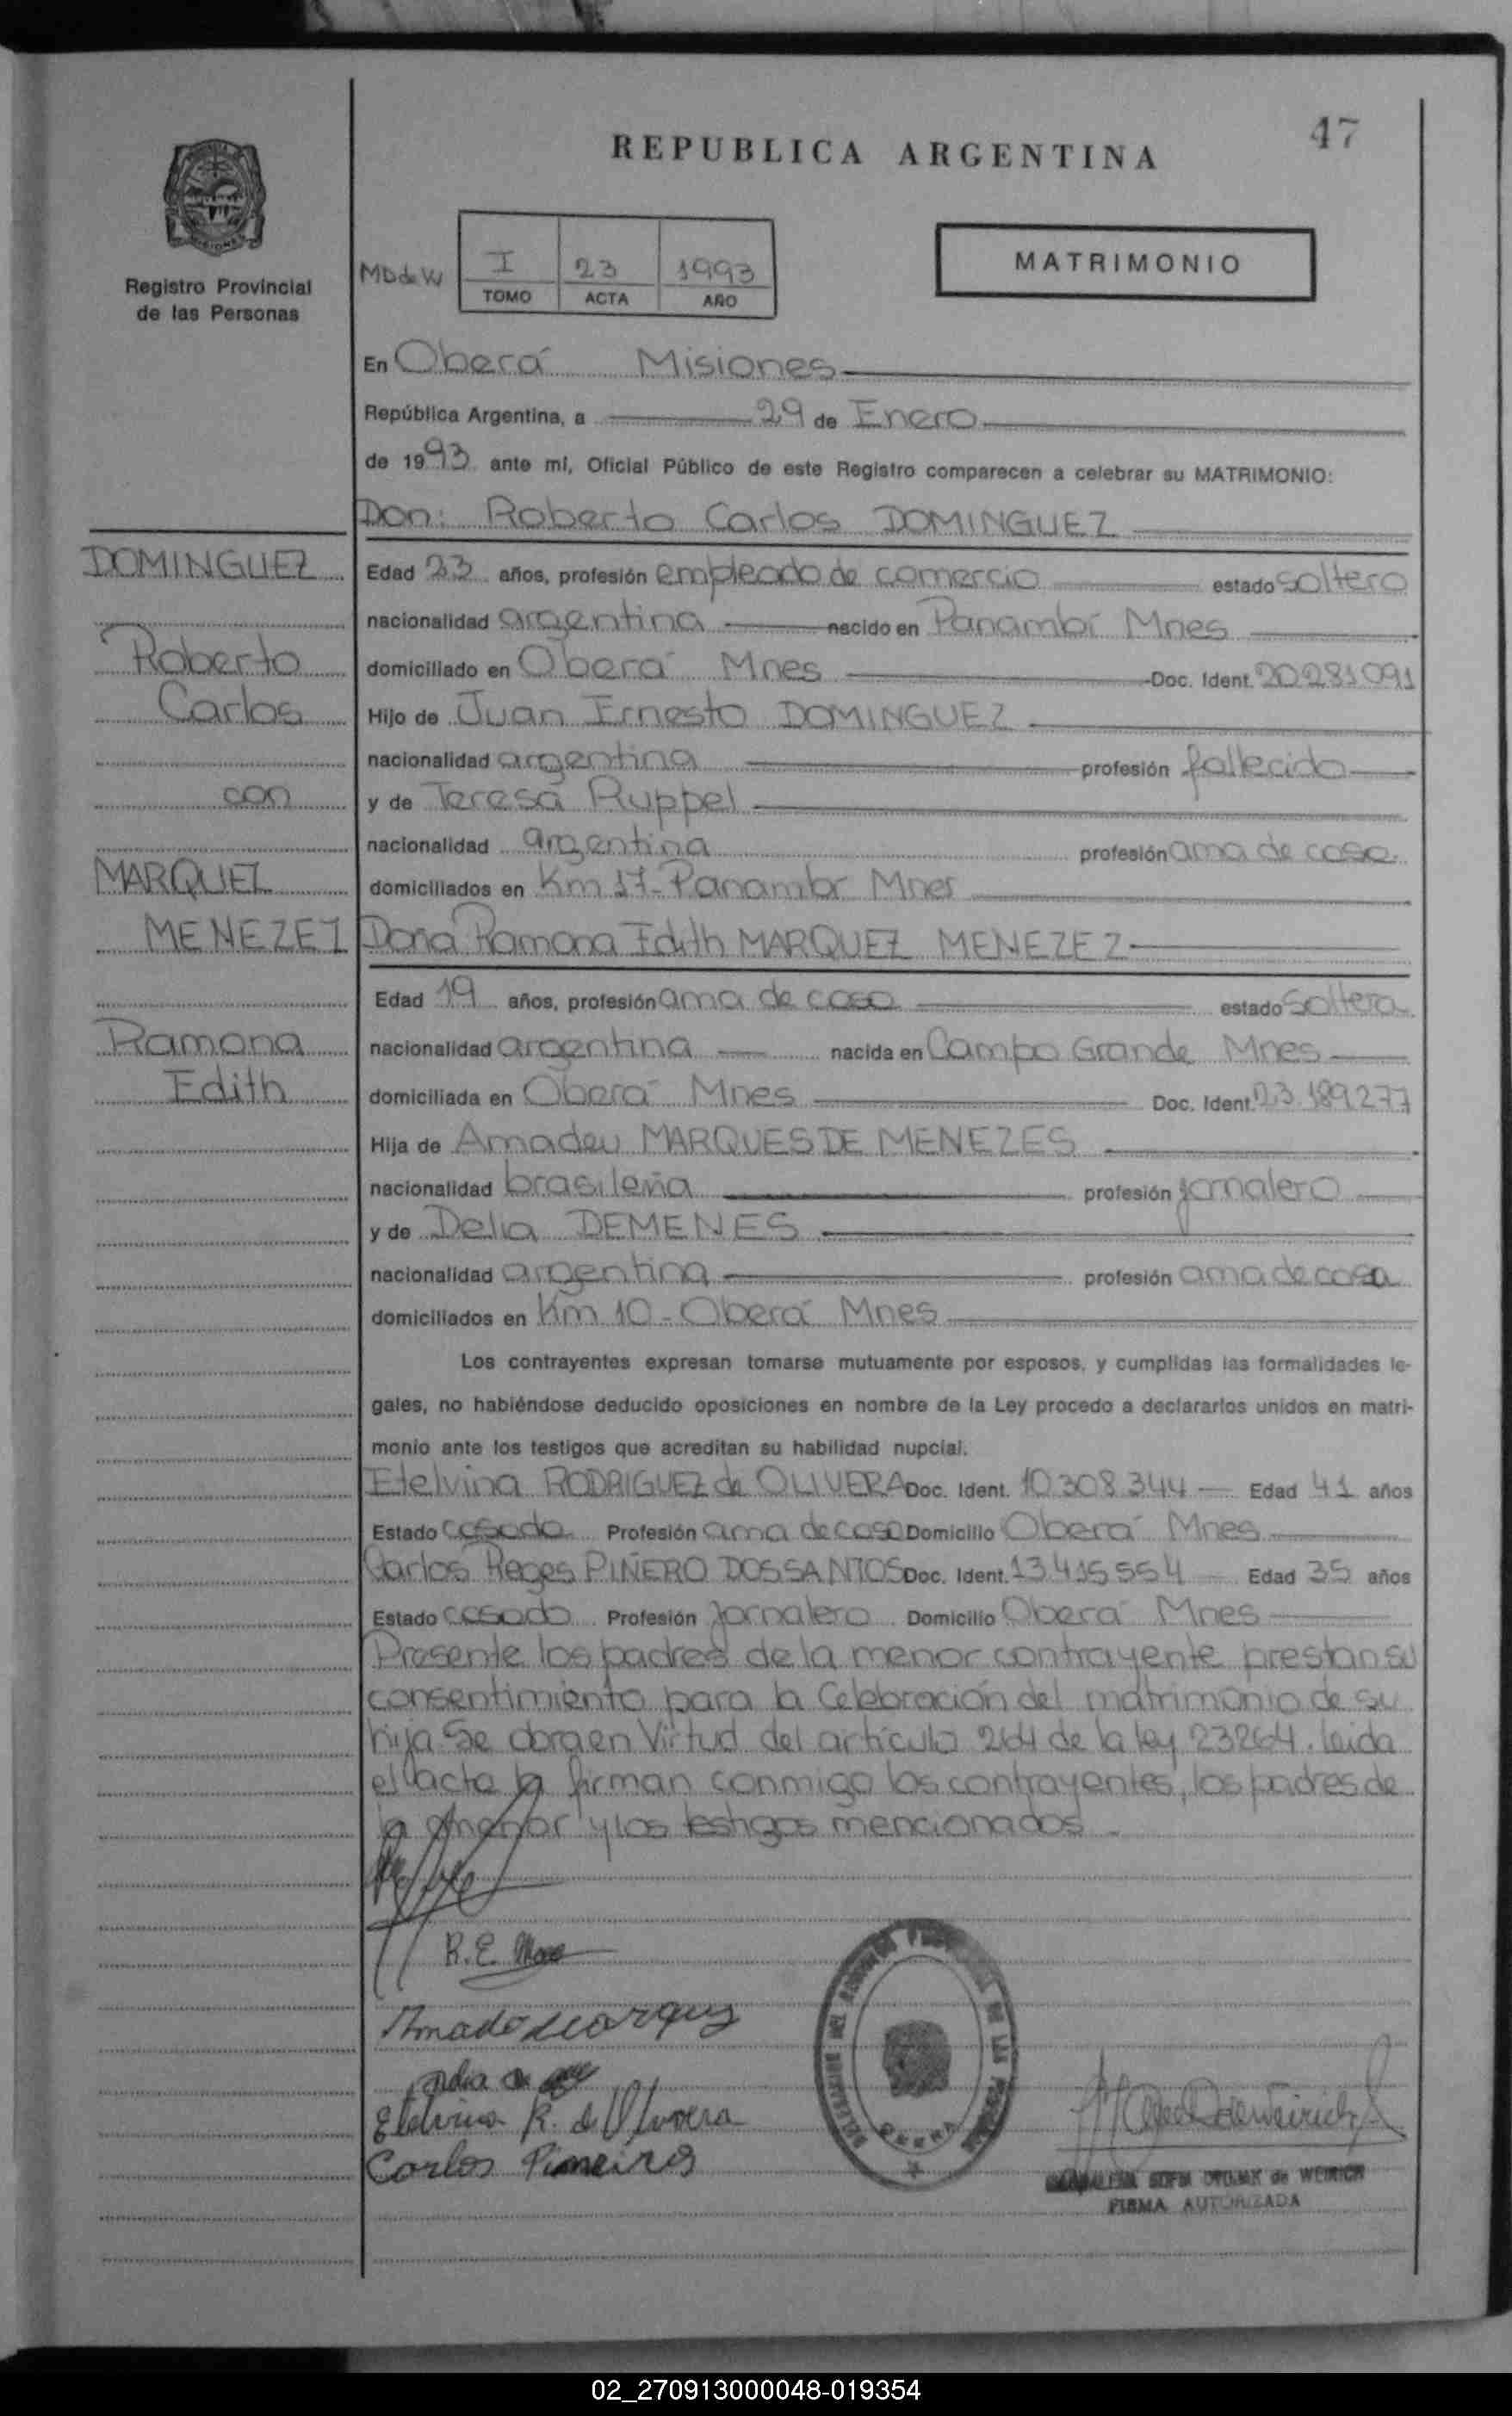 47
REPUBLICA ARGENTINA
Registro Provincial
de las Personas
MDdeW
I 23 1993
TOMO ACTA AÑO
MATRIMONIO
En Oberá Misiones
República Argentina, a 29 de Enero
de 1993 ante mí, Oficial Público de este Registro comparecen a celebrar su MATRIMONIO:
Don: Roberto Carlos DOMINGUEZ
DOMINGUEZ
Roberto
Carlos
con
MARQUEZ
MENEZEZ
Ramona
Edith
Edad 23 años, profesión empleado de comercio estado soltero
nacionalidad argentina nacido en Panambí Mnes
domiciliado en Oberá Mnes Doc. Ident. 20281091
Hijo de Juan Ernesto DOMINGUEZ
nacionalidad argentina profesión fallecido
y de Teresa Ruppel
nacionalidad argentina profesión ama de casa.
domiciliados en Km 17- Panambí Mnes
Doña Ramona Edith MARQUEZ MENEZEZ
Edad 19 años, profesión ama de casa estado soltera
nacionalidad argentina nacida en Campo Grande Mnes
domiciliada en Oberá Mnes Doc. Ident. 23.189.277
Hija de Amadeu MARQUES DE MENEZES
nacionalidad brasileña profesión jornalero
y de Delia DEMENES
nacionalidad argentina profesión ama de casa
domiciliados en Km 10 - Oberá Mnes
Los contrayentes expresan tomarse mutuamente por esposos, y cumplidas las formalidades le-
gales, no habiéndose deducido oposiciones en nombre de la Ley procedo a declararlos unidos en matri-
monio ante los testigos que acreditan su habilidad nupcial.
Etelvina RODRIGUEZ de OLIVERA Doc. Ident. 10.308.344 Edad 41 años
Estado casada Profesión ama de casa Domicilio Oberá Mnes
Carlos Reges PIÑERO DOSSANTOS Doc. Ident. 13.415.554 Edad 35 años
Estado casado Profesión Jornalero Domicilio Oberá Mnes
Presente los padres de la menor contrayente prestan su
consentimiento para la Celebración del matrimonio de su
hija Se obra en Virtud del artículo 264 de la ley 23264. leida
el acta la firman conmigo los contrayentes, los padres de
la menor y los testigos mencionados.
R.E.
Etelvina R. de Olivera
Carlos Pineiro
OBERA
de WEIRICH
FIRMA AUTORIZADA
02_270913000048-019354